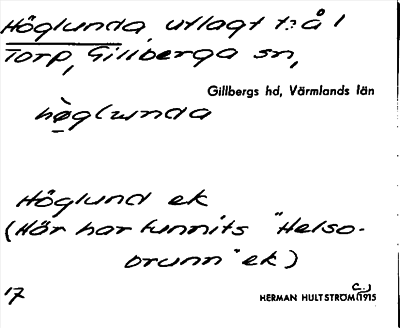 Höglunda, utlagt t: å 1
Torp, Gillberga sn,
Gillbergs hd, Värmlands län
hø̀glunda
Höglund ek
(Här har funnits "Helso-
brunn" ek)
17
HERMAN HULTSTRÖM (c.) 1915